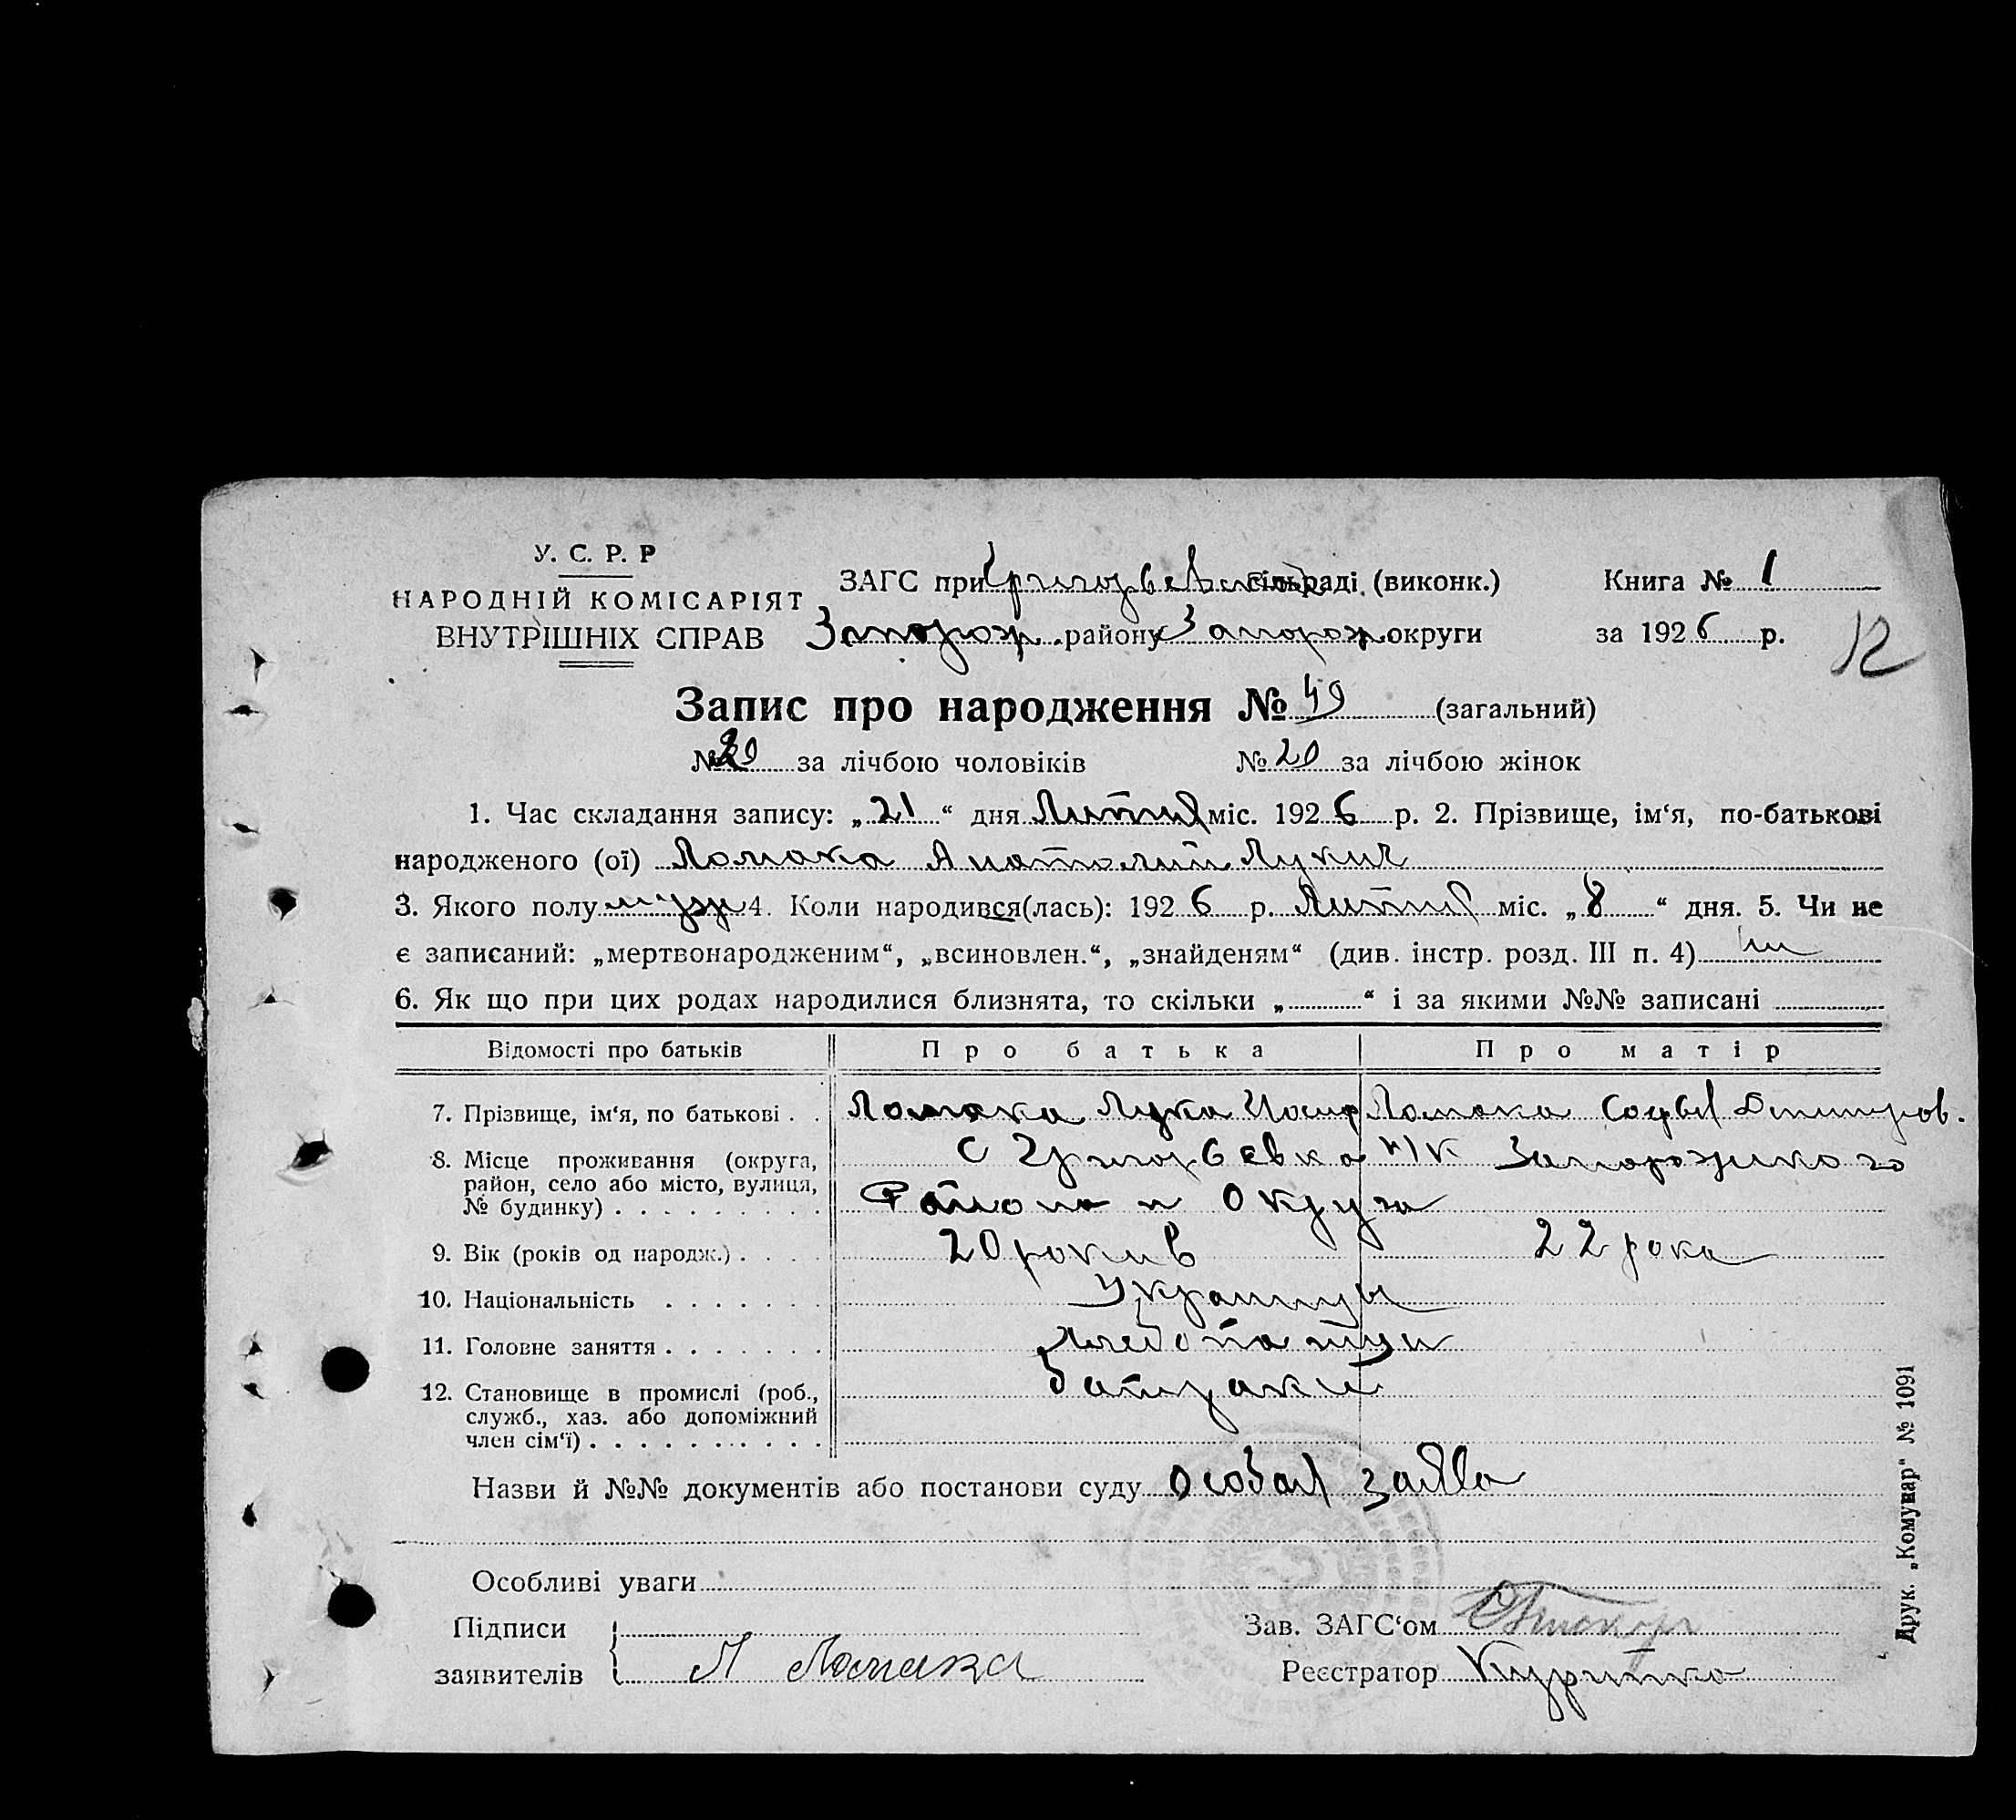 У. С. Р. Р
НАРОДНІЙ КОМІСАРІЯТ
ВНУТРІШНІХ СПРАВ
ЗАГС при Григорьевской сільраді (виконк.) Книга № 1
Запорож району Запорож округи за 1926 р.
12
Запис про народження № 49 (загальний)
№ за лічбою чоловіків № 20 за лічбою жінок
1. Час складання запису: „21“ дня Лютия міс. 1926 р. 2. Прізвище, ім‘я, по-батькові
народженого (ої) Ломака Анатолий Лукич
3. Якого полу муж 4. Коли народився(лась): 1926 р. Лютия міс. „8“ дня. 5. Чи не
є записаний: „мертвонародженим“, „всиновлен.“, „знайденям“ (див. інстр. розд. III п. 4) ни
6. Як що при цих родах народилися близнята, то скільки „ “ і за якими №№ записані
Відомості про батьків Про батька Про матір
7. Прізвище, ім‘я, по батькові Ломака Лука Иосиф Ломака Софья Дмитров.
8. Місце проживання (округа, район, село або місто, вулиця, № будинку) с Григорьевка н/к Запорожского
Района и Округа
9. Вік (років од народж.) 20 рокив 22 рока
10. Національність Украинцы
11. Головне заняття Хлебопатци
12. Становище в промислі (роб., служб., хаз. або допоміжний член сім‘ї) батраки
Назви й №№ документів або постанови суду Особая заява
Особливі уваги
Підписи
заявителів Л Ломака
Зав. ЗАГС‘ом
Реєстратор Курипко
Друк. „Комунар“ № 1091